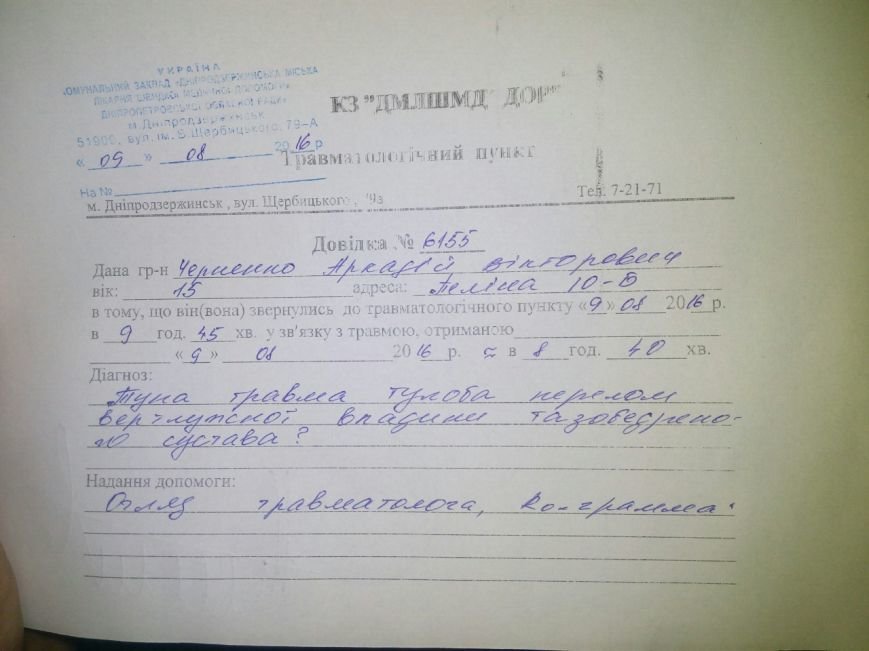 УКРАЇНА
КОМУНАЛЬНИЙ ЗАКЛАД «ДНІПРОДЗЕРЖИНСЬКА МІСЬКА
ЛІКАРНЯ ШВИДКОЇ МЕДИЧНОЇ ДОПОМОГИ»
ДНІПРОПЕТРОВСЬКОЇ ОБЛАСНОЇ РАДИ»
м. Дніпродзержинськ
51900, вул. ім. В. Щербицького, 79-А
« 09 » 08 2016 р
На №
КЗ "ДМЛШМД" ДОР"
Травматологічний пункт
Тел. 7-21-71
м. Дніпродзержинськ, вул. Щербицького,
Довілка № 6155
Дана гр-н Черненко Аркадій Вікторович
вік: 15 адреса: 10-
в тому, що він(вона) звернулись до травматологічного пункту «9» 08 2016 р.
в 9 год. 45 хв. у зв'язку з травмою, отриманою
« 9 » 08 2016 р. в 8 год. 40 хв.
Діагноз:
Тупа травма тулоба перелом
вертлужної впадини тазобедрено-
го сустава?
Надання допомоги:
Огляд травматолога, грамма